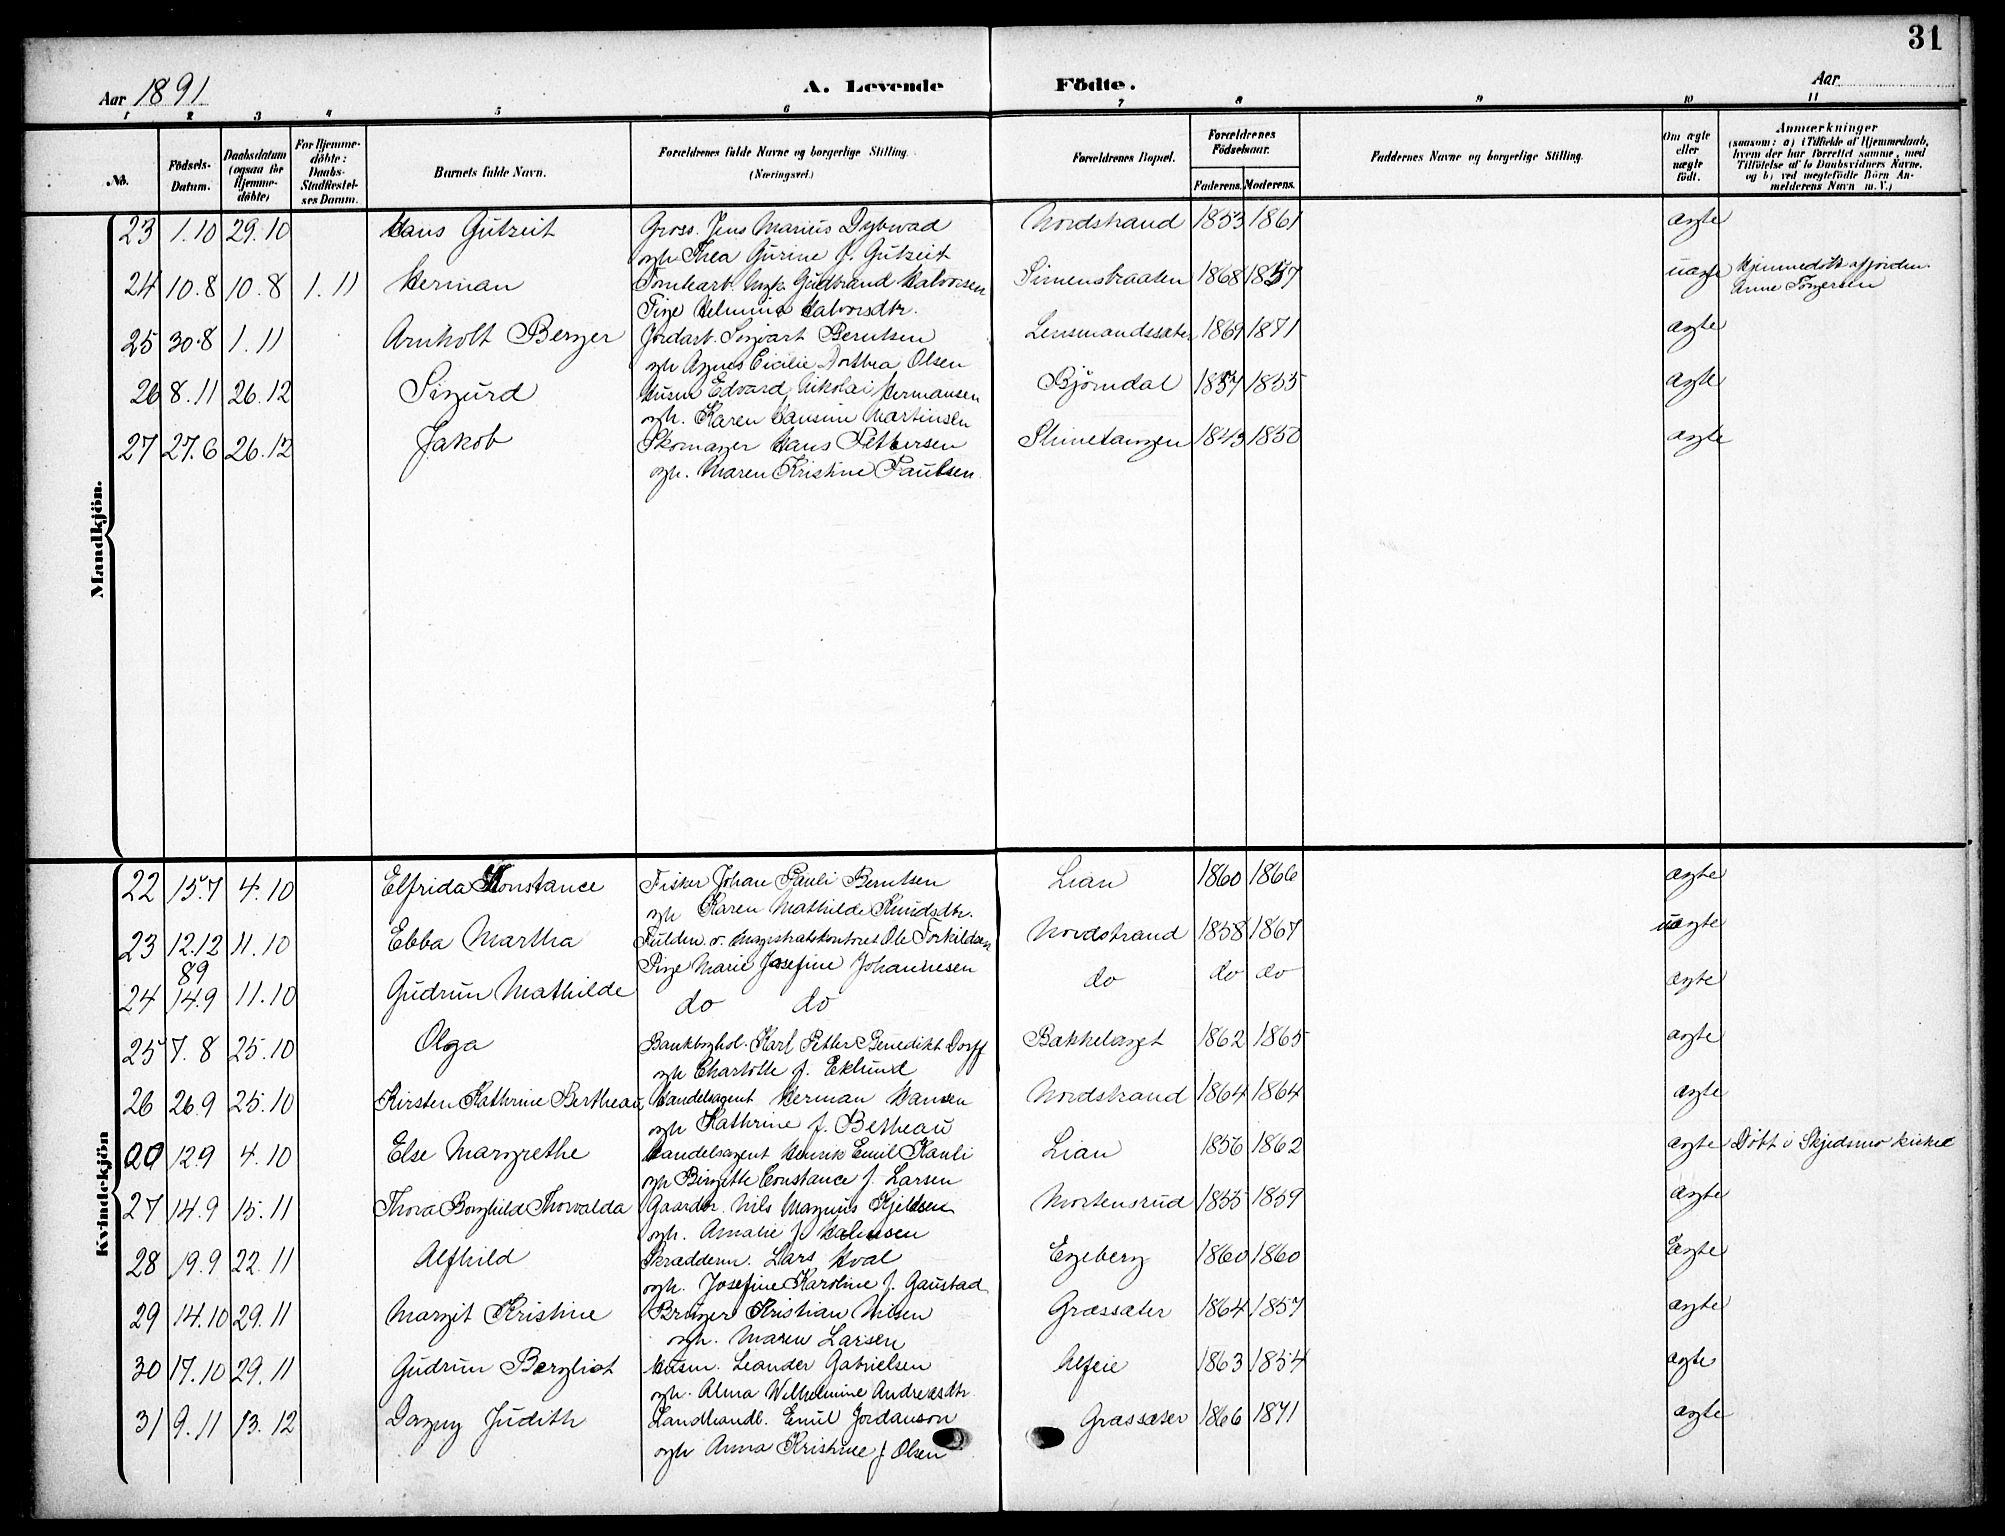 31
Aar 1891 A. Levende Födte. Aar
1 2 3 4 5 6 7 8 9 10 11
No. Födsels-Datum. Daabsdatum (ogsaa for Hjemme-döbte) For Hjemme-döbte: Daabs-Stadfæstel-ses Datum. Barnets fulde Navn. Forældrenes fulde Navne og borgerlige Stilling. (Næringsvei.) Forældrenes Bopæl. Forældrenes Födselsaar. Faderens. Moderens. Faddernes Navne og borgerlige Stilling. Om ægte eller uægte födt. Anmærkninger (saasom: a) i Tilfælde af Hjemmedaab, hvem der har forrettet samme, med Tilföielse af to Daabsvidners Navne, og b) ved uægtefödte Börn An-melderens Navn m. V.)
Mandkjön.
23 1.10 29.10 Hans Gutzeit Gross. Jens Marius Dybwad Nordstrand 1853 1861 ægte
og h Thea Gurine f. Gutzeit
24 10.8 10.8 1.11 Herman Tomtearb. Ungk. Gudbrand Halvorsen Simenstraaten 1868 1857 uægte Hjemmedöbt af jordm.
Pige Helmina Halvorsdtr. Anne Torgersen
25 30.8 1.11 Arnholt Berger Jordarb. Sigvart Berntsen Lensmandssæter 1869 1871 ægte
og h Agnes Cicilie Dorthea Olsen
26 8.11 26.12 Sigurd Husm Edvard Nikolai Hermansen Björndal 1857 1855 ægte
og h. Karen Hansine Martinsen
27 27.6 26.12 Jakob Skomager Hans Pettersen Slimetangen 1843 1850 ægte
og h. Maren Kristine Paulsen
Kvindekjön
22 15.7 4.10 Elfrida Konstance Fisker Johan Pauli Berntsen Lian 1860 1866 ægte
og h Karen Mathilde Knudsdtr.
23 12.12 89 11.10 Ebba Martha Fuldm. v. Magistratskontoret Ole Torkildsen Nordstrand 1858 1867 uægte
Pige Marie Josefine Johannesen
24 14.9 11.10 Gudrun Mathilde do do do do do ægte
25 7.8 25.10 Olga Bankboghol. Karl Petter Benedikt Dorff Bækkelaget 1862 1865 ægte
og h Charlotte f. Eklund
26 26.9 25.10 Kirsten Kathrine Bertheau Handelsagent Herman Hansen Nordstrand 1864 1864 ægte
og h Kathrine f. Betheau
20 12.9 4.10 Else Margrethe Handelsagent Henrik Emil Kauli Lian 1856 1862 ægte Döbt i Skjedsmo kirke
og h Birgitte Constance f. Larsen
27 14.9 15.11 Thora Borghild Thorvalda Gaardbr. Nils Magnus Kjeldsen Mortensrud 1855 1859 ægte
og h. Amalie f
28 19.9 22.11 Alfhild Skrædderm. Lars Hval Egeberg 1860 1860 Ægte
og h. Josefine Karoline f. Gaustad
29 14.10 29.11 Margit Kristine Bruger Kristian Nilsen Græssæter 1864 1857 ægte
og h. Maren Larsen
30 17.10 29.11 Gudrun Bergliot Husm. Leander Gabrielsen 1863 1854 ægte
og h. Alma Wilhelmine Andreasdtr.
31 9.11 13.12 Dagny Judith Landhandl. Emil Jordanson Græssæter 1866 1871 ægte
og h Anna Kristine f Olsen